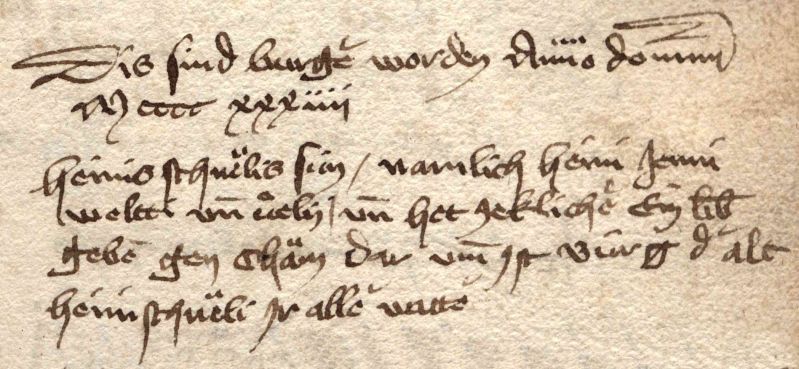 Dis sind burger worden Anno domini
Mcccc xxxiiii
Heinis schnëlis sün / namlich heini Jenni
weltti vnd ůely / vnd het yeklicher Ein lib
geben gen Chäm dar vmb Jst bürg der alt
heini schnëli Jr aller vatter